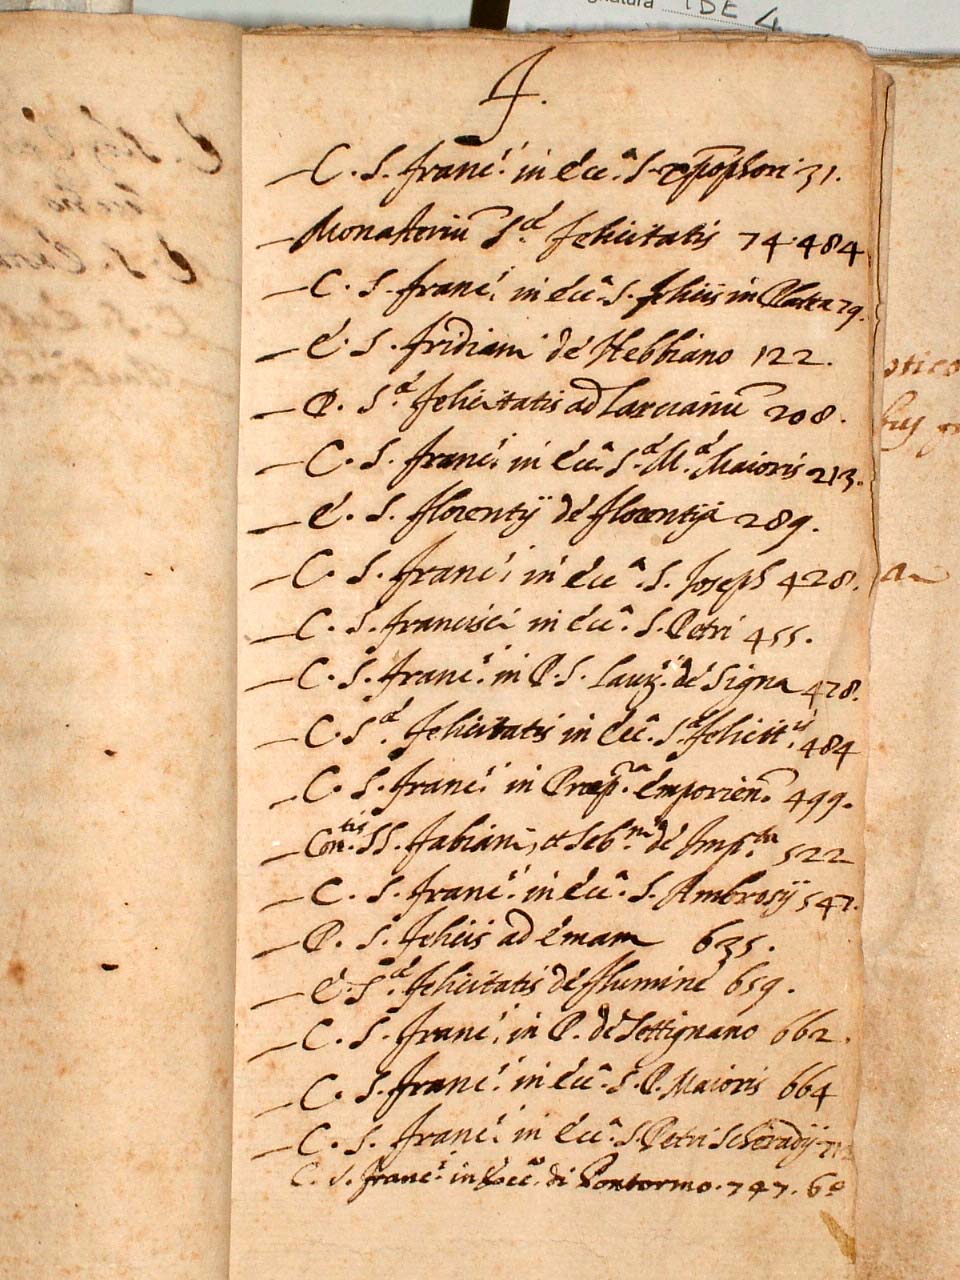 TBE 4
F.
C. S. Franc.i in Ecc.a S. Xpophori 31.
Monasteriū S.æ Felicitatis 74 484
C. S. Franc.i in Ecc.a S. Felicis in Platea 79.
E. S. Fridiani de Hebbiano 122.
P. S.æ Felicitatis ad Larcianū 208.
C. S. Franc.i in Ecc.a S.æ M.æ Maioris 213.
E. S. Florentij de Florentija 289.
C. S. Franc.i in Ecc.a S. Joseph 428.
C. S. Francisci in Ecc.a S. Petri 455.
C. S. Franc.i in P. S. Laur.ij de Signa 478.
C. S.æ Felicitatis in Ecc.a S.æ Felicit.is 484
C. S. Franc.i in Præp.ra Emporien. 499.
Con.tis SS. Fabiani, et Seb.ni de Imp.ta 522
C. S. Franc.i in Ecc.a S. Ambrosij 547.
P. S. Felicis ad Emam 635.
E. S.æ Felicitatis de Flumine 659.
C. S. Franc.i in P. de Settignano 662.
C. S. Franc.i in Ecc.a S. P. Maioris 664
C. S. Franc.i in Ecc.a S. Petri Scheradij
C. S. Franc.i in Ecc.a di Pontormo. 747. 60